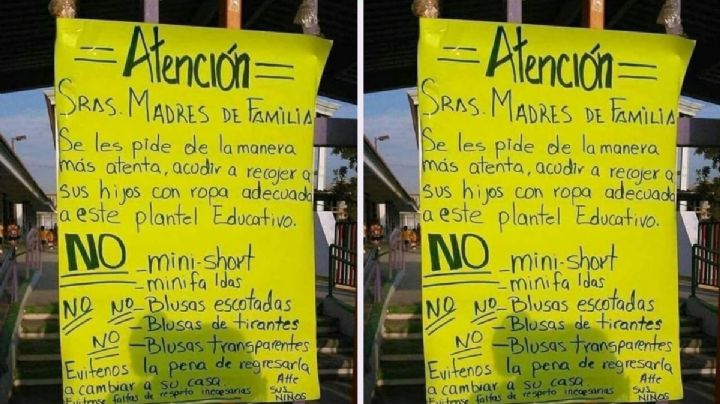 =Atención=
SRAS. MADRES DE FAMILIA
Se les pide de la manera
más atenta, acudir a recojer a
sus hijos con ropa adecuada
a este plantel Educativo.
NO -mini-short
-minifaldas
NO NO -Blusas escotadas
-Blusas de tirantes
NO -Blusas transparentes
Evitenos la pena de regresarla
a cambiar a su casa Atte
Evitense faltas de respeto inecesarias SUS
NIÑOS
=Atención=
SRAS. MADRES DE FAMILIA
Se les pide de la manera
más atenta, acudir a recojer a
sus hijos con ropa adecuada
a este plantel Educativo.
NO -mini-short
-minifaldas
NO NO -Blusas escotadas
-Blusas de tirantes
NO -Blusas transparentes
Evitenos la pena de regresarla
a cambiar a su casa Atte
Evitense faltas de respeto inecesarias SUS
NIÑOS